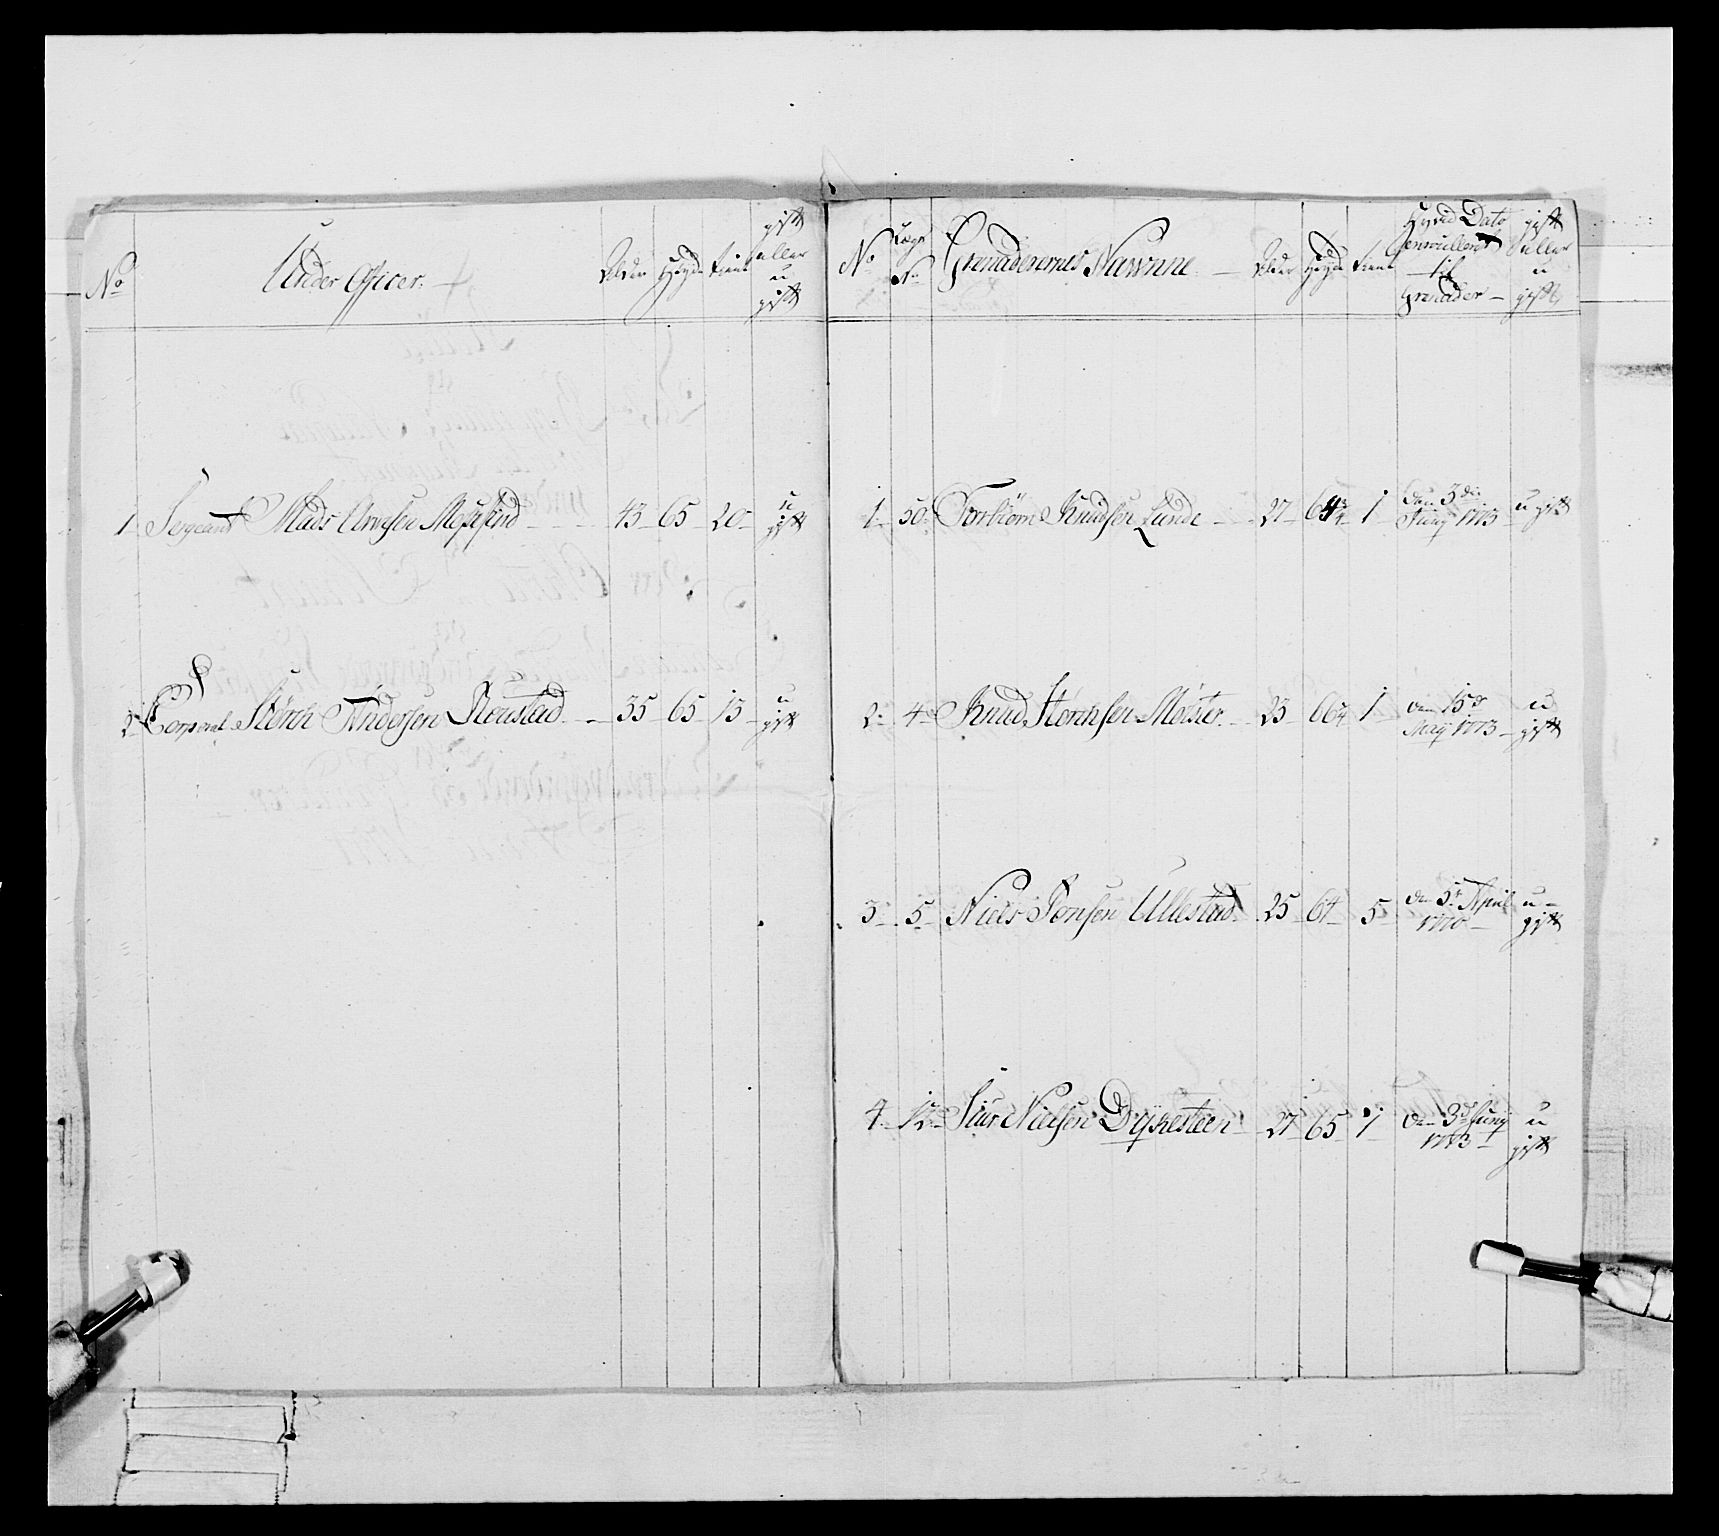 No
Under Officer.
Alder
Høyde
tient
gift
eller
u
gift
1 Sergeant Mads Arnesen 43 65 20 u
gift
2 Corporal Størch Andersen Rønstad 35 65 13 u
gift
No
Lægs
No
Grenaderernes Nawnne
Alder
Høyde
tient
Hvad Dato
enrulleret
til
Grenader
gift
eller
u
gift
1 50 Torbiörn Knudsen Lunde 27 64 3/4 1 den 3die
Junÿ 1773 u gift
2 4 Knud 23 66 3/4 1 den 15de
Maÿ 1773 u
gift
3 5 Niels Jonsen Ullestad 25 64 5 den 5te April
1770 u
gift
4 12 Siur Nielsen Dÿresteen 27 65 1 den 3die Junÿ
1773 u
gift